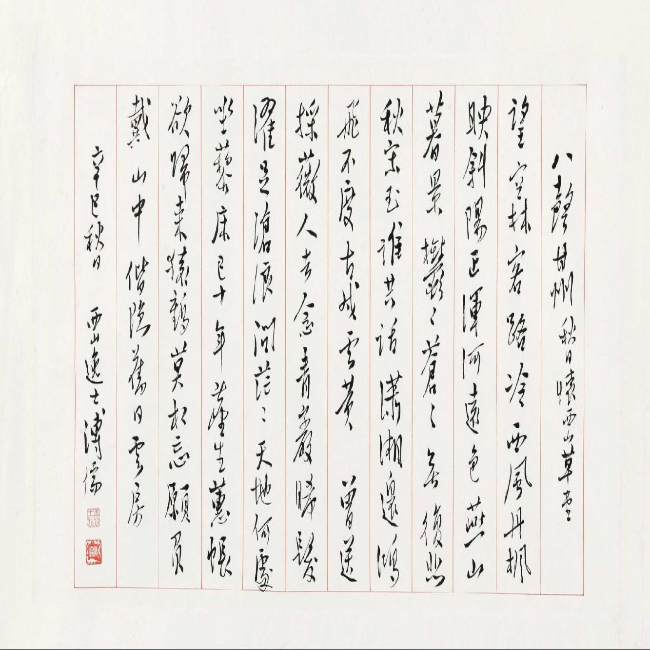 八聲甘州 秋日懷西山草堂
望空林客路冷西風丹楓
映斜陽正渾河遠色燕山
暮景鬱鬱蒼蒼無復悲
秋宋玉誰共話瀟湘邊鴻
飛不度古戍雲黃 曾送
採薇人去念青巖晞髮
濯足滄浪問茫茫天地何處
坐藜床已十年塵生蕙帳
欲歸來猿鶴莫相忘願負
戴山中偕隱舊日雲房
辛巳秋日 西山逸士溥儒